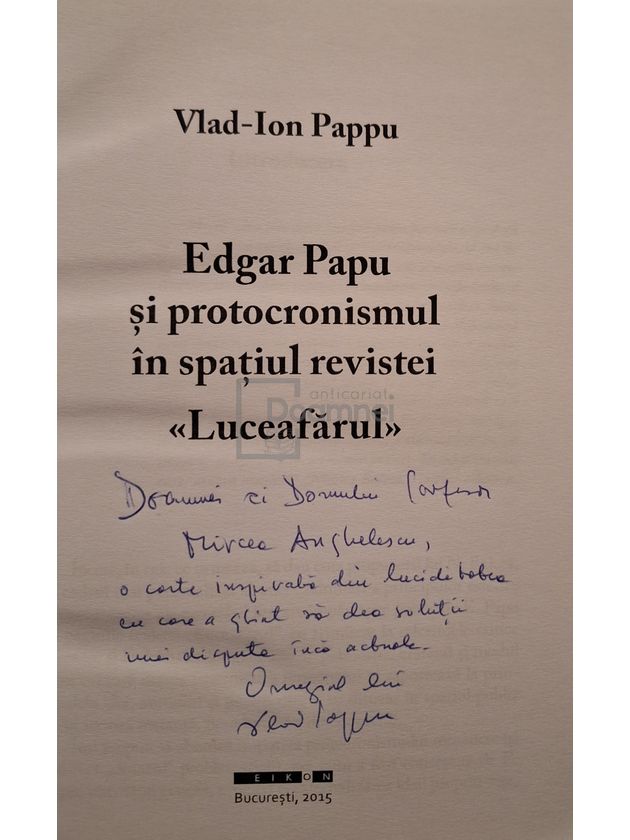 Vlad-Ion Pappu
Edgar Papu
și protocronismul
în spațiul revistei
anticariat
Doamnei
«Luceafărul»
Doamnei și Domnului Profesor
Mircea Anghelescu,
o carte inspirată din luciditatea
cu care a știut să dea soluții
unei dispute încă actuale.
Omagiul lui
Vlad Pappu
EIKON
București, 2015